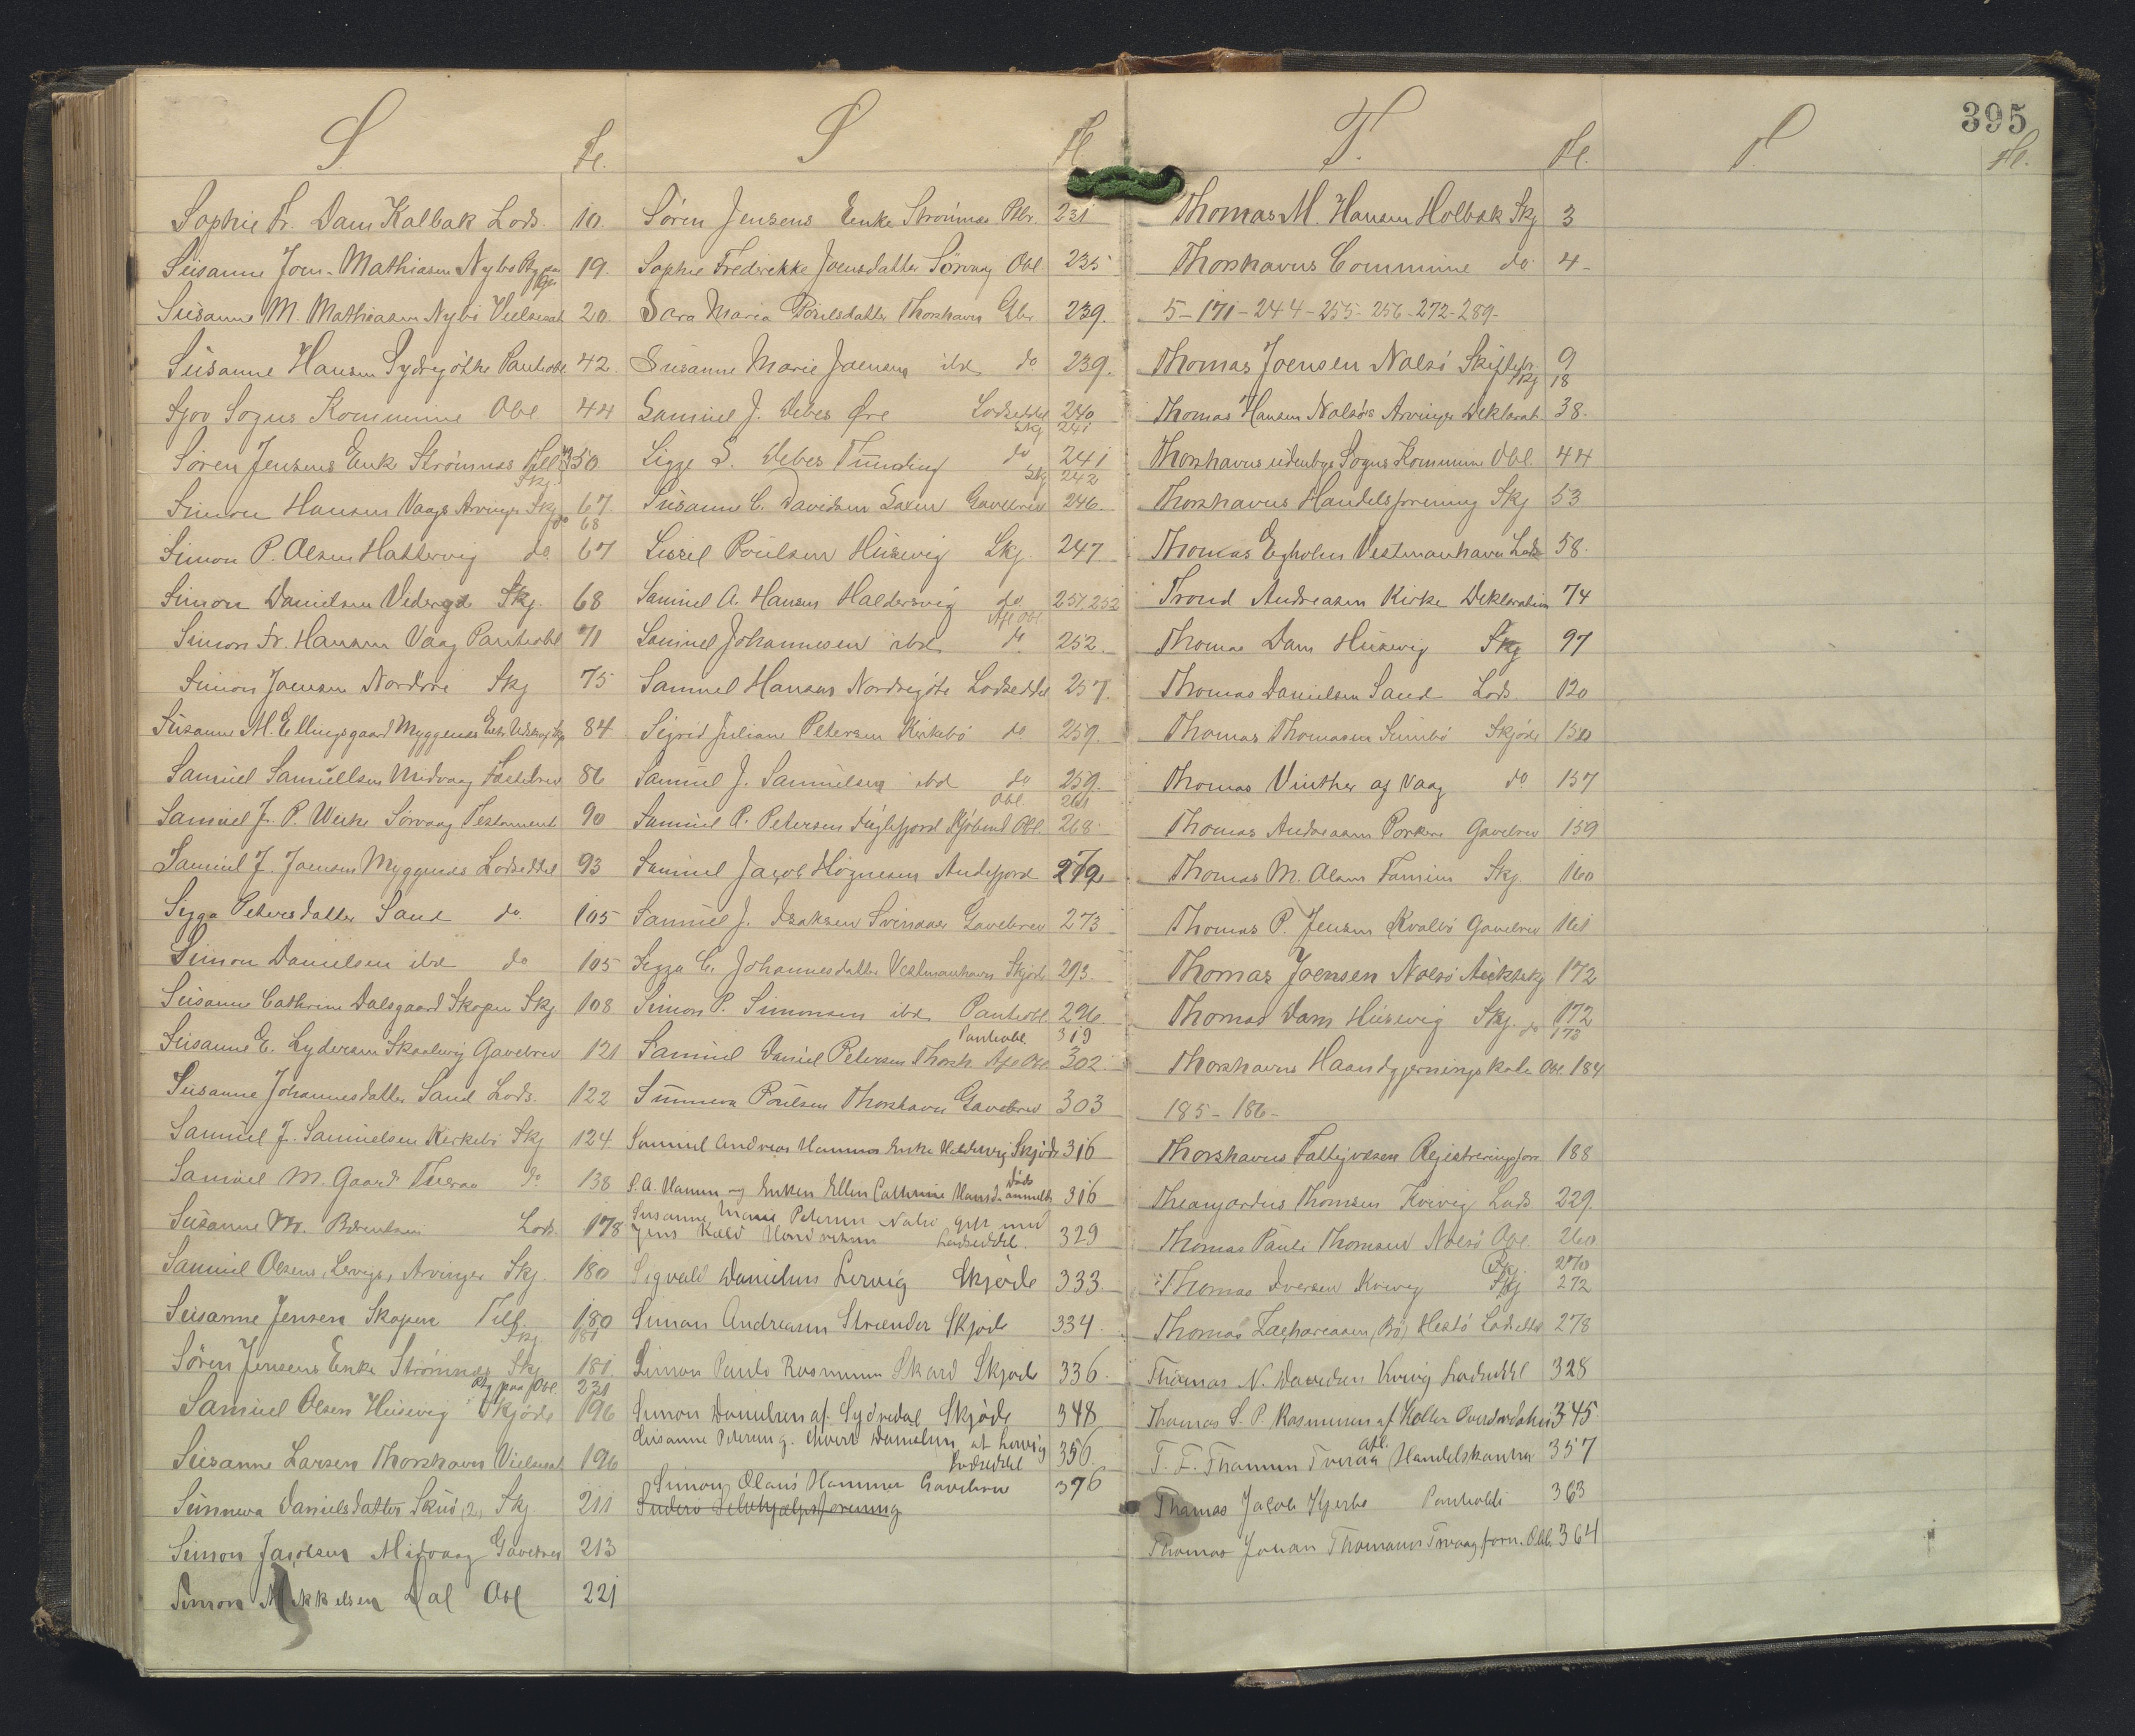 395
S.
Fl.
Sophie Fr. Dam Kalbak Lods. 10.
Susanne Joen-Mathiasen Nybö 19.
Susanne M. Mathiasen Nybö Vielsesat 20.
Susanne Hansen Sydregöthe Pantobl. 42.
Sjov Sogns Kommune Obl 44
Sören Jensens Enke Strömnæs 50
Skj.
Simon Hansen Vaags Arvinger Skj 67
do 68
Simon P. Olsen Hattervig do. 67
Simon Danielsen Viderejde Skj. 68
Simon Fr. Hansen Vaag Pantobl 71
Simon Joensen Nordöre Skj 75
Susanne M. Ellingsgaard Myggenæs 84
Samuel Samuellsen Midvaag Fæstebrev 86
Samuel J. P. Weihe Sörvaag Testament 90
Samuel J. Joensen Myggenæs Lodseddel 93
Sigga Petersdatter Sand do. 105
Simon Danielsen ibd do 105
Susanne Cathrine Dalsgaard Skopen Skj 108
Susanne E. Lydersen Skaalevig Gavebrev 121
Susanne Johannesdatter Sand Lods. 122
Samuel J. Samuelsen Kirkebö Skj 124
Samuel M. Gaard Tveraa do 138
Susanne M. Berentsen Lods. 178
Samuel Olsens, Lervigs, Arvinger Skj. 180
Susanne Jensen Skopen Till. 180
Skj. 181
Sören Jensens Enke Strömnæs Skj 181.
paa Obl. 231
Samuel Olsen Husevig Skjöde 196
Susanne Larsen Thorshavn Vielsesat 196
Sunneva Danielsdatter Skuö, 2, Skj 211
Simon Jacobsen Midvaag Gavebrev 213
Simon Mikkelsen Dal Obl 221
S
Fl
Sören Jensens Enke Strömnæs Pbr. 231
Sophie Frederikke Joensdatter Sörvaag Obl 235
Sara Maria Poulsdatter Thorshavn Gbr 239.
Susanne Marie Joensen ibd do 239.
Samuel J. Debes Öre Lodseddel 240
Skj 241
Sigge S. Debes Funding do 241
Skj 242
Susanne C. Davidsen Saxen Gavebrev 246.
Sissel Poulsen Husevig Skj. 247.
Samuel A. Hansen Haldersvig do 251, 252
Afl Obl
Samuel Johannesen ibd d. 252.
Samuel Hansen Nordregöte Lodseddel 257.
Sigrid Juliane Petersen Kirkebö do 259.
Samuel J. Samuelsen ibd do 259.
Obl. 261
Samuel P. Petersen Fuglefjord Kjöbmd Obl 268.
Samuel Jacob Högnesen Andefjord 272
Samuel J. Isaksen Svinaaer Gavebrev 273
Sigga C. Johannesdatter Vestmanhavn Skjöde 293.
Simon P. Simonsen ibd Pantobl. 296.
Pantobl 319
Samuel Daniel Petersen Thorsh. Afl Obl 302.
Sunneva Poulsen Thorshavn Gavebrev 303
Samuel Andreas Hammer Enke Haldervig Skjöde 316
S. A. Hamm og Enken Ellen Cathrine Hansd. Döds anmeldt 316
Susanne Marie Petersen Nolsö gift med
Jens Kæld Lodseddel. 329
Sigvald Danielsen Lervig Skjöde 333.
Simon Andreasen Strænder Skjöde 334.
Simon Paulo Rasmussen Skard Skjöde 336.
Simon Danielsen af Sydredal Skjöde 348
Susanne Petersen g. Danielsen af Lervig
Lodseddel 356.
Simon Olaus Hammer Gavebrev 376
Suderö Selvhjælpsforening
T.
Fl.
Thomas M. Hansen Holbæk Skj 3
Thorshavns Commune do 4-
5-171-244-255-256-272-289-
Thomas Joensen Nolsö Skiftebr. 9
Skj 18
Thomas Hansen Nolsös Arvinger Deklarat. 38.
Thorshavns udenbys Sogns Kommune Obl. 44
Thorshavns Handelsforening Skj 53
Thomas Egholm Vestmanhavn Lods 58.
Trond Andreasen Kirke Deklaration 74
Thomas Dam Husevig Skj 97
Thomas Danielsen Sand Lods. 120
Thomas Thomasen Sumbö Skjöde 130
Thomas Vinther af Vaag do 157
Thomas Andreasen Porkere Gavebrev 159
Thomas M. Olsen Famien Skj. 160
Thomas P. Jensen Kvalbö Gavebrev 161
Thomas Joensen Nolsö Auktskj 172
Thomas Dam Husevig Skj. 172
do 173
Thorshavns Haandgjerningskole Obl. 184
185-186-
Thorshavns Fattigvæsen Registreringsforr 188
Theangardius Thomsen Kvivig Lods 229.
Thomas Pauli Thomsen Nolsö Obl. 260.
Skj. 270
Thomas Iversen Kvivig Skj 272
Thomas Zachariasen, (Bö) Hestö Lodseddel 278
Thomas N. Davidsen Kvivig Lodseddel 328
Thomas S. P. Rasmussen af Koller 345
T. F. Thomsen Tveraa afl. Handelskontra 357
Thomas Jacob Hjerbe Pantobl. 363
Thomas Johan Thomasen Trvaag forn. Obl. 364
T
Fl.